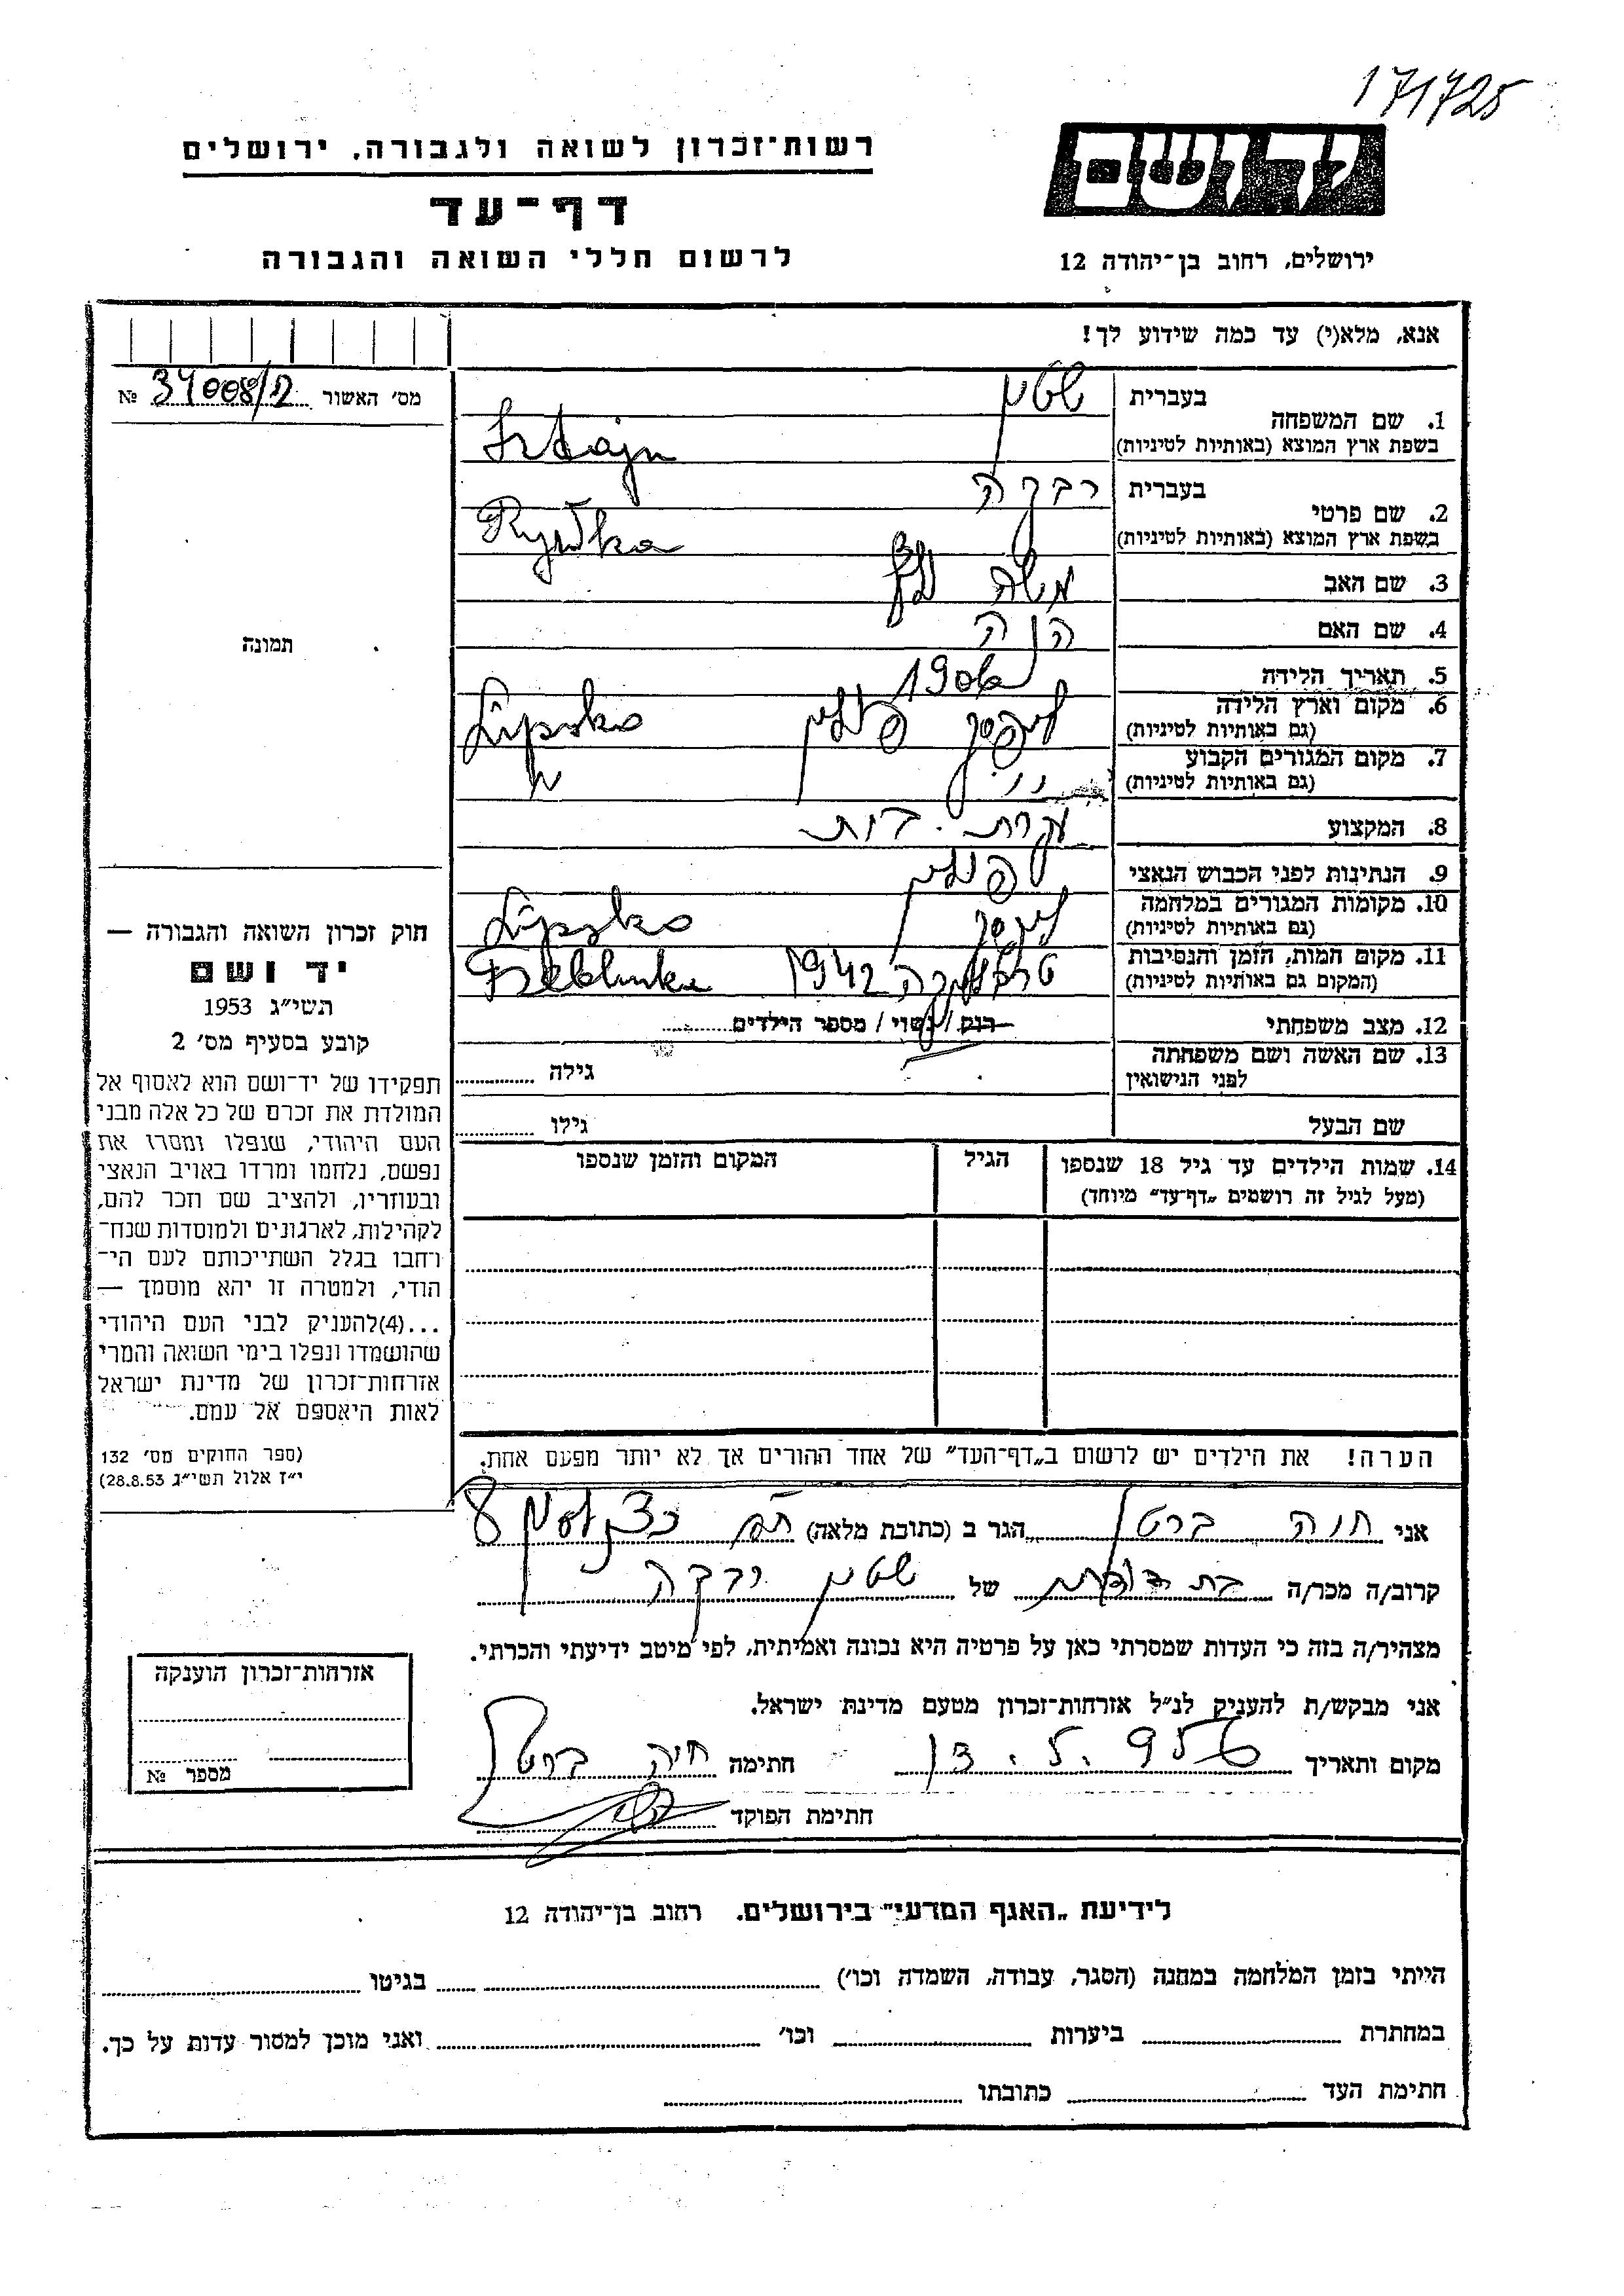 171725
יד ושם
רשות־זכרון לשואה ולגבורה, ירושלים
דף־עד
לרשום חללי השואה והגבורה
ירושלים, רחוב בן־יהודה 12
אנא, מלא(י) עד כמה שידוע לך!
מס׳ האשור 34008/2 №
בעברית שטיין
1. שם המשפחה
בשפת ארץ המוצא (באותיות לטיניות) Sztajn
בעברית רבקה
2. שם פרטי
בשפת ארץ המוצא (באותיות לטיניות) Rywka
3. שם האב משה
4. שם האם חנה
5. תאריך הלידה
6. מקום וארץ הלידה ליפסק פולין Lipsko
(גם באותיות לטיניות)
7. מקום המגורים הקבוע
(גם באותיות לטיניות)
8. המקצוע עקרת. בית
9. הנתינות לפני הכבוש הנאצי פולין
10. מקומות המגורים במלחמה ליפסק Lipsko
(גם באותיות לטיניות)
11. מקום המות, הזמן והנסיבות טרבלינקה 1942 Treblinka
(המקום גם באותיות לטיניות)
12. מצב משפחתי רוק / נשוי / מספר הילדים
13. שם האשה ושם משפחתה
לפני הנישואין גילה
שם הבעל גילו
14. שמות הילדים עד גיל 18 שנספו הגיל המקום והזמן שנספו
(מעל לגיל זה רושמים „דף־עד״ מיוחד)
הערה! את הילדים יש לרשום ב„דף־העד״ של אחד ההורים אך לא יותר מפעם אחת.
תמונה
חוק זכרון השואה והגבורה —
יד ושם
תשי״ג 1953
קובע בסעיף מס׳ 2
תפקידו של יד־ושם הוא לאסוף אל
המולדת את זכרם של כל אלה מבני
העם היהודי, שנפלו ומסרו את
נפשם, נלחמו ומרדו באויב הנאצי
ובעוזריו, ולהציב שם וזכר להם,
לקהילות, לארגונים ולמוסדות שנח־
רחבו בגלל השתייכותם לעם הי־
הודי, ולמטרה זו יהא מוסמך —
...(4)להעניק לבני העם היהודי
שהושמדו ונפלו בימי השואה והמרי
אזרחות־זכרון של מדינת ישראל
לאות היאספם אל עמם.
(ספר החוקים מס׳ 132
י״ז אלול תשי״ג 28.8.53)
אני חוה ברטל הגר ב (כתובת מלאה)
קרוב/ה מכר/ה בת דודה של שטיין רבקה
מצהיר/ה בזה כי העדות שמסרתי כאן על פרטיה היא נכונה ואמיתית, לפי מיטב ידיעתי והכרתי.
אני מבקש/ת להעניק לנ״ל אזרחות־זכרון מטעם מדינת ישראל.
מקום ותאריך חתימה חוה ברטל
חתימת הפוקד
אזרחות־זכרון הוענקה
מספר №
לידיעת „האגף המדעי״ בירושלים, רחוב בן־יהודה 12
הייתי בזמן המלחמה במחנה (הסגר, עבודה, השמדה וכו׳) בגיטו
במחתרת ביערות וכו׳ ואני מוכן למסור עדות על כך.
חתימת העד כתובתו